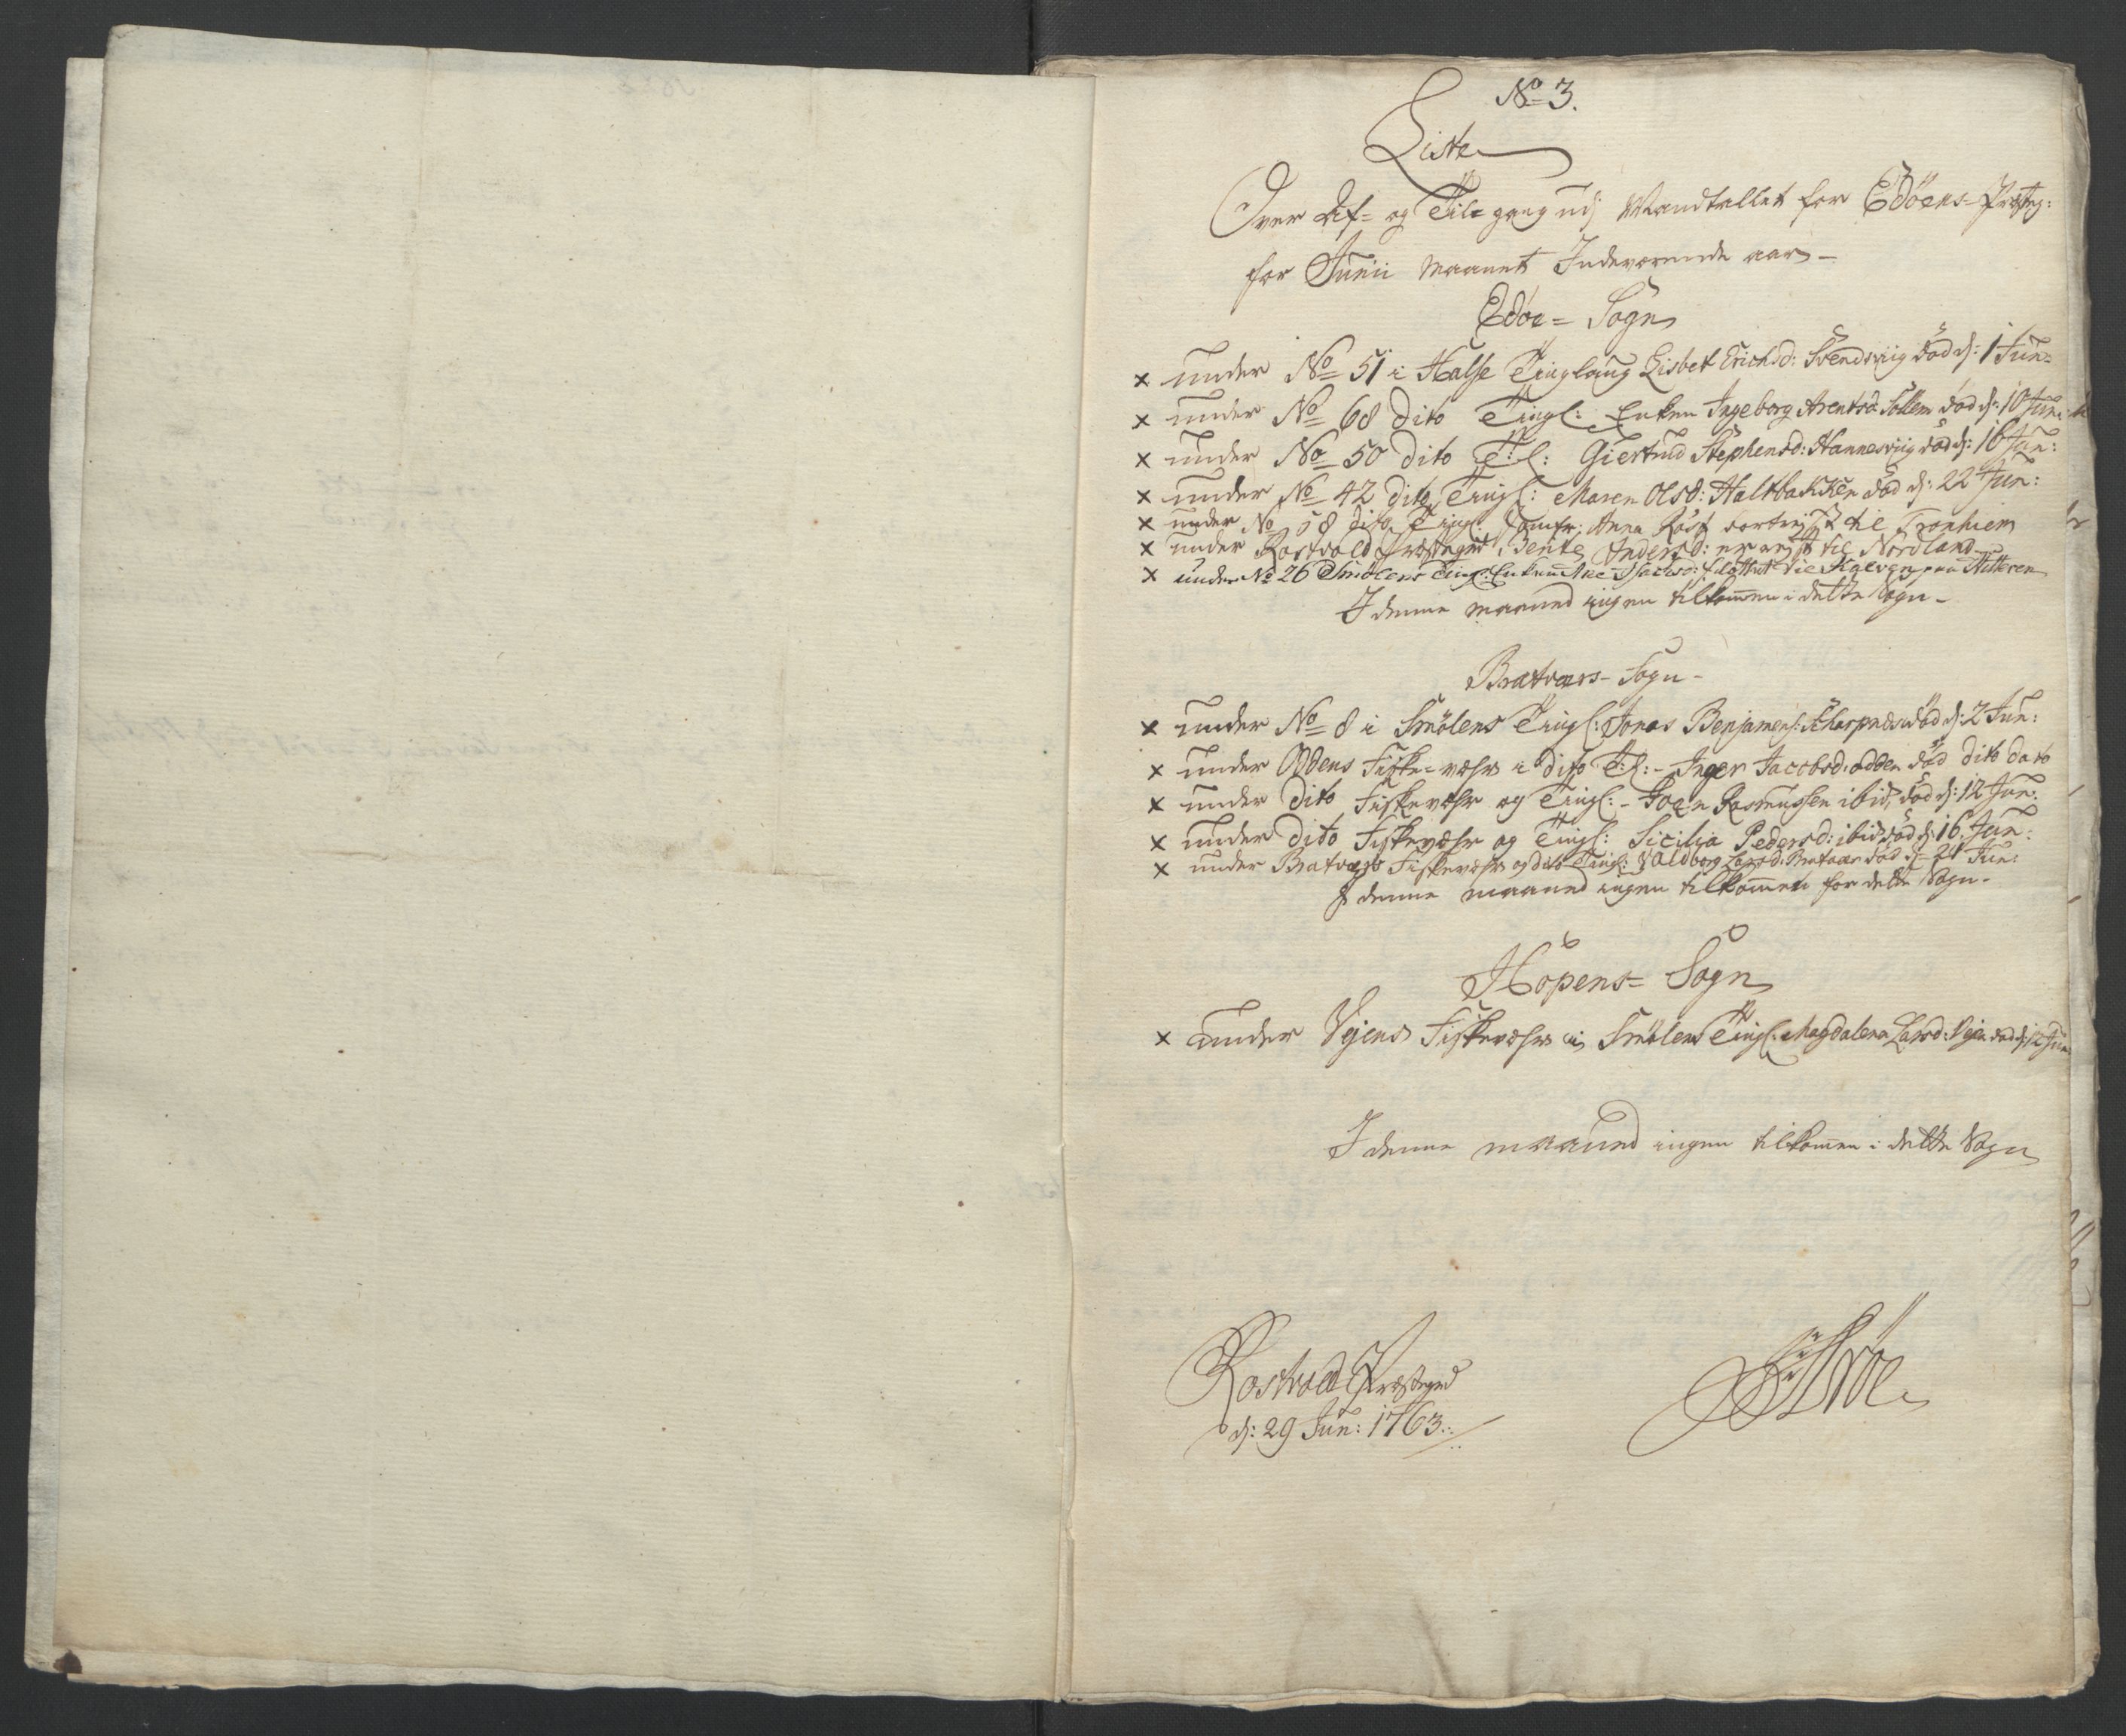 No 3.
Liste
Over Af= og Til=gang udj Mandtallet for Edöens=Præstg:
for Junii Maanet Indeværende aar –
Edöe= Sogn
x under No 51 i Halse Tinglaug Lisbet Erichsd: Svendsviig död d: 1 Jun:
x under No 68 dito Tingl: Enken Ingeborg Arentsd: Sollem död d: 10 Jun:
x under No 50 dito T:l: Giertrud Stephensd: Hannesviig död d: 16 Jun:
x under No 42 dito Tingl: Maren Olsd: Haltbakken död d: 22 Jun:
x under No 58 dito Tingl: Jomfr: Anna Röst bortrejst til Tronhiem
x under Rostvold Præstegrd Bente Andersd: er rejst til Nordland
x under No 26 Smölens Tingl: Enken Ane Isachsd: flöttet til paa Hitteren
I denne maaned ingen tilkommen i dette Sogn –
Bratværs= Sogn –
x under No 8 i Smölens Tingl: Jonas Benjamens: Skarpnes död d: 2 Jun:
x under Oddens Fiske=væhr i dito T:l: – Inger Jacobsd: odden död dito dato
x under dito Fiskevæhr og Tingl: – Joen Rasmussen ibid, död d: 12 Jun:
x under dito Fiskevæhr og Tingl: Sicilia Pedersd: ibid: död d: 16 Jun:
x under Bratværs Fiskevæhr og dito Tingl: Valdborg Larsd: Bratvær död d: 24 Jun:
I denne maaned ingen tilkommen for dette Sogn –
Hopens= Sogn
x under Vejens Fiskevæhr i Smölens Tingl: Magdalena Larsd: Vejen död d: 12 Jun:
I denne maaned ingen tilkomen i dette Sogn
Rostvold Præstegrd
d: 29 Jun: 1763.
Ströe